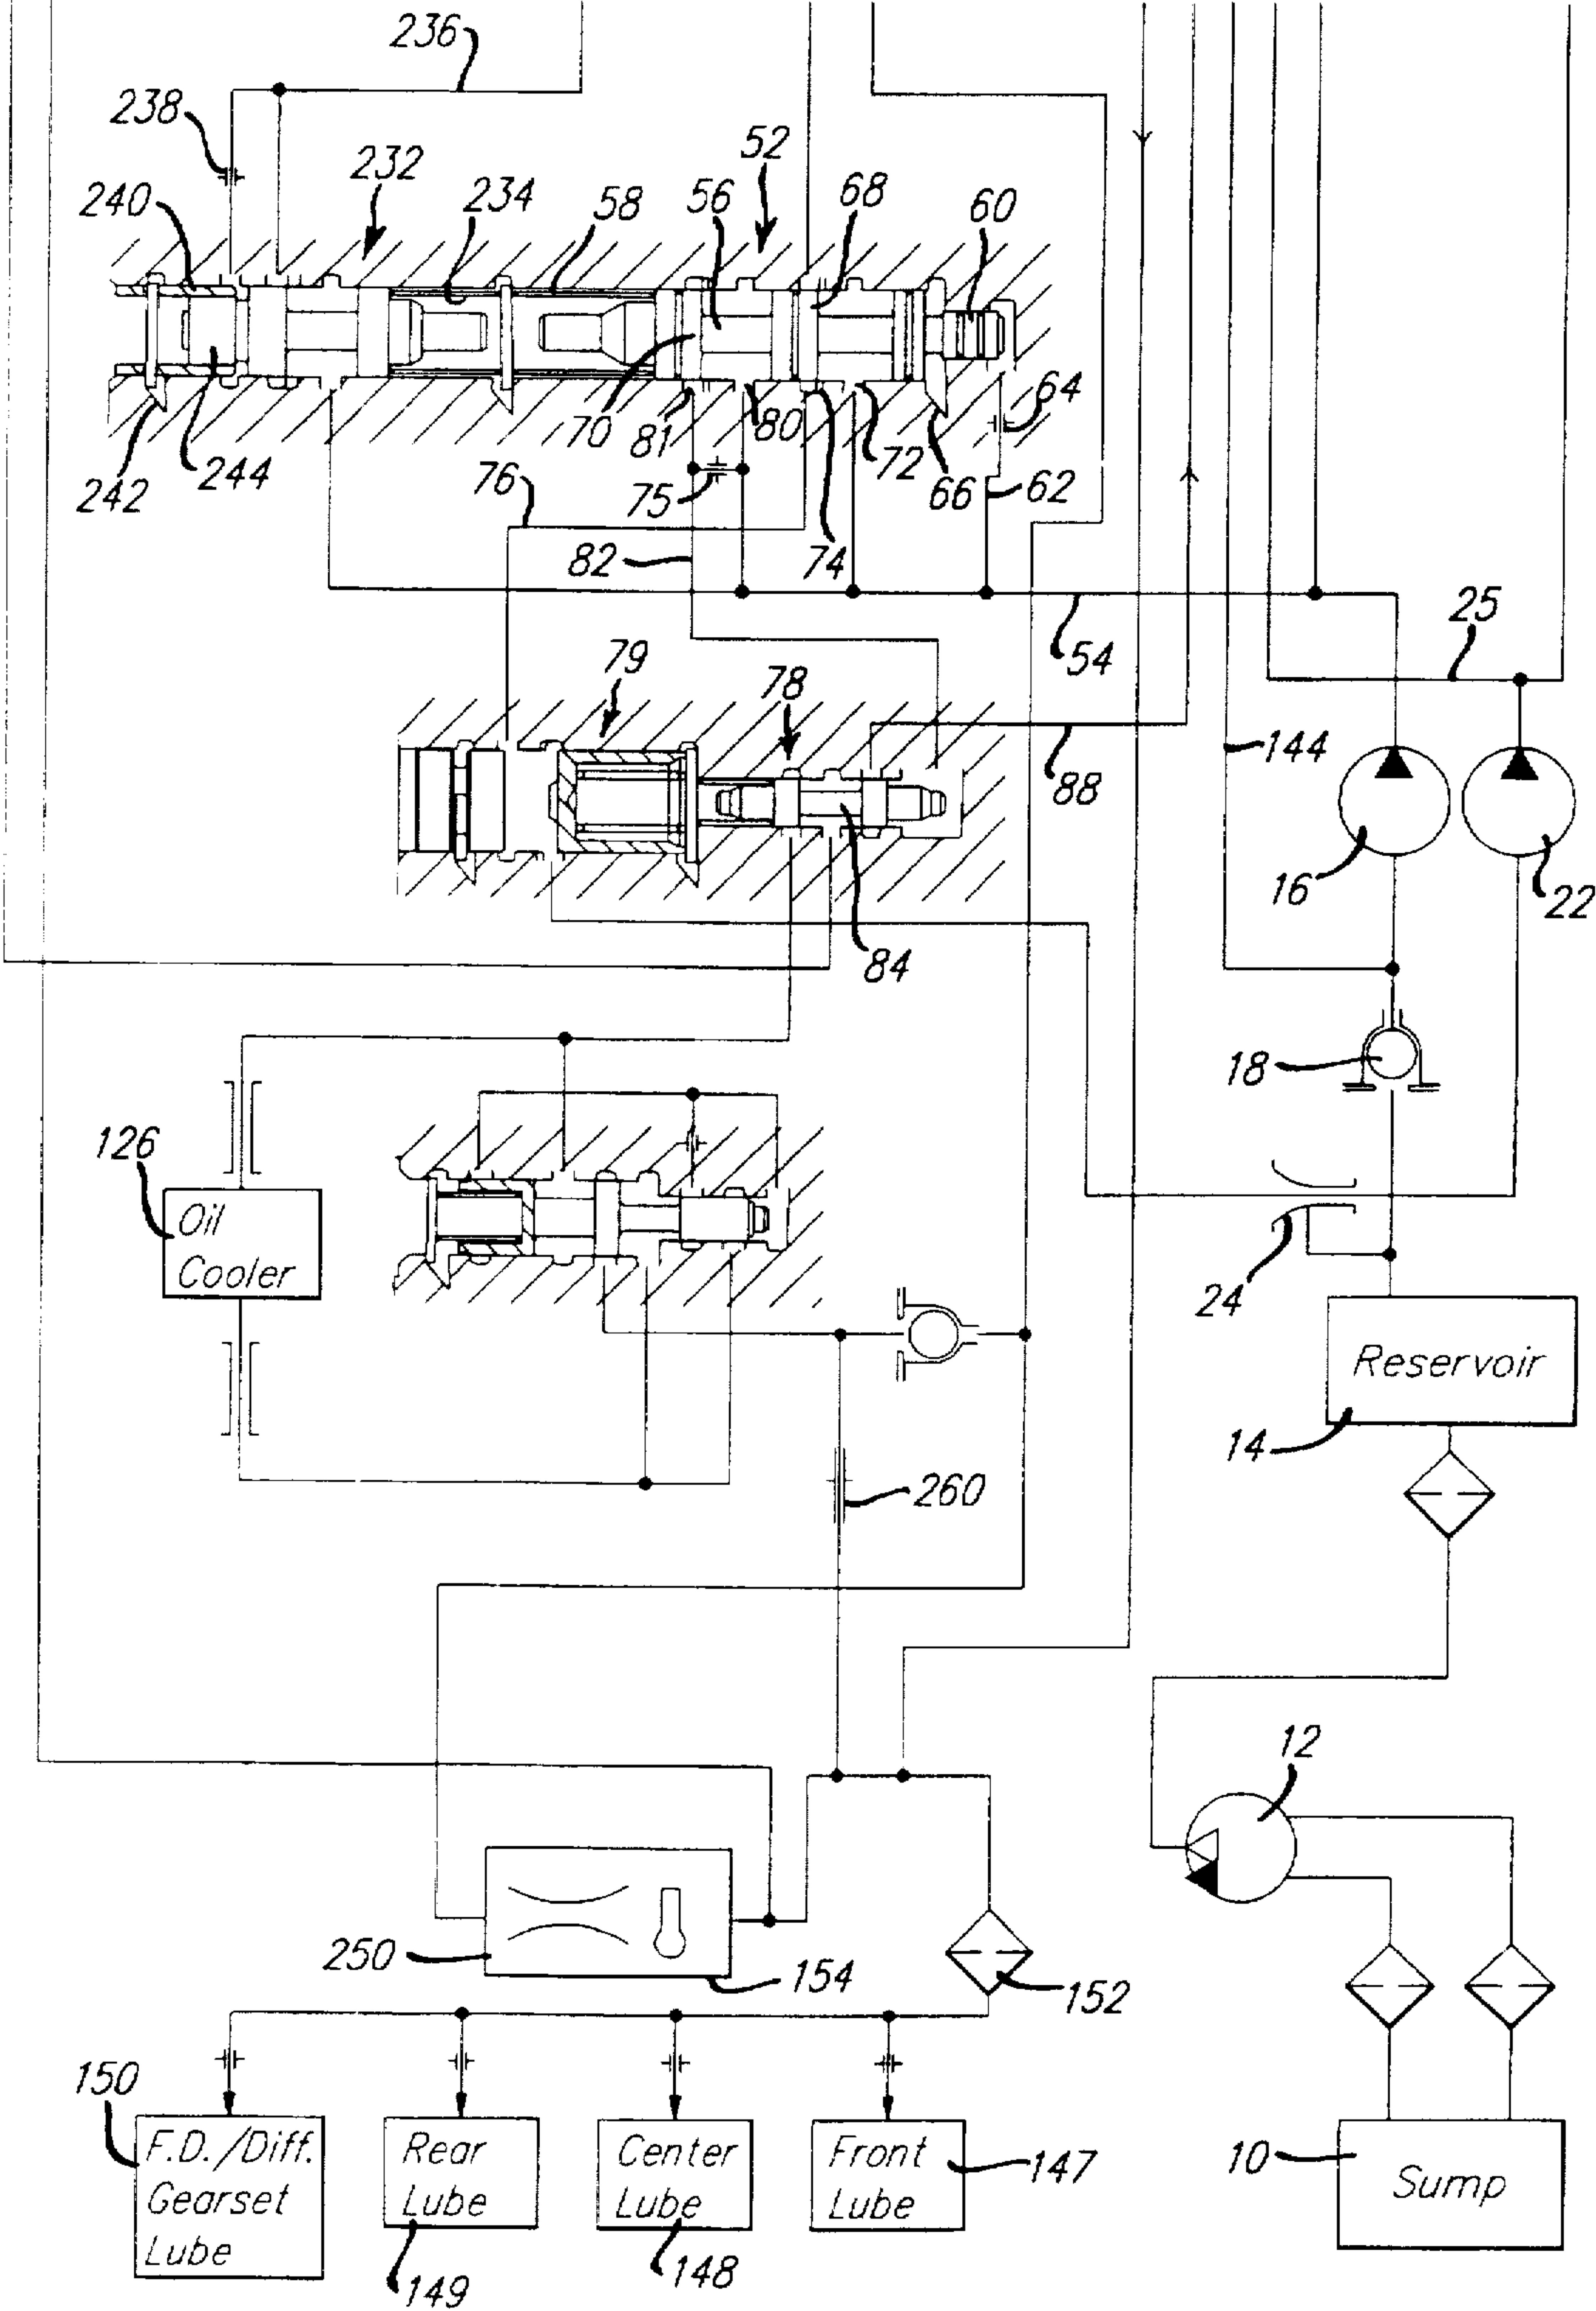 236
238
52
232
240
234
58
56
68
60
242
244
70
81
80
72
64
76
75
66
62
82
74
54
25
79
78
144
88
16
22
84
18
126
Oil
Cooler
24
Reservoir
14
260
12
250
154
152
150
F.D./Diff.
Gearset
Lube
Rear
Lube
149
Center
Lube
148
Front
Lube
147
10
Sump